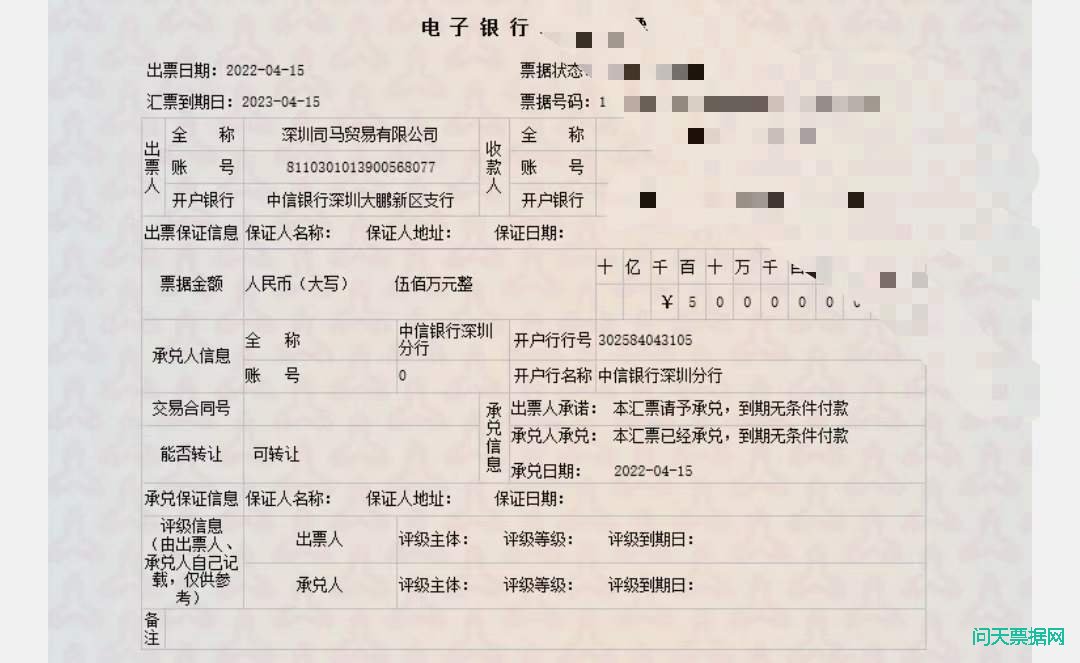 电子银行
出票日期：2022-04-15 票据状态：
汇票到期日：2023-04-15 票据号码：1
出票人 全称 深圳司马贸易有限公司 收款人 全称
账号 8110301013900568077 账号
开户银行 中信银行深圳大鹏新区支行 开户银行
出票保证信息 保证人名称： 保证人地址： 保证日期：
票据金额 人民币（大写） 伍佰万元整 十 亿 千 百 十 万 千
￥ 5 0 0 0 0 0
承兑人信息 全称 中信银行深圳分行 开户行行号 302584043105
账号 0 开户行名称 中信银行深圳分行
交易合同号 承兑信息 出票人承诺： 本汇票请予承兑，到期无条件付款
能否转让 可转让 承兑人承兑： 本汇票已经承兑，到期无条件付款
承兑日期： 2022-04-15
承兑保证信息 保证人名称： 保证人地址： 保证日期：
评级信息（由出票人、承兑人自己记载，仅供参考） 出票人 评级主体： 评级等级： 评级到期日：
承兑人 评级主体： 评级等级： 评级到期日：
备注
问天票据网